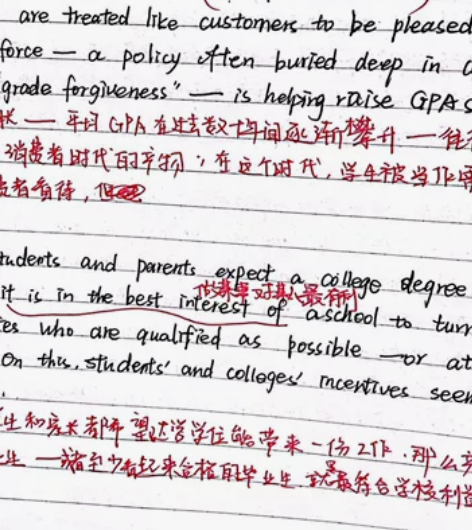 are treated like customers to be pleased
force — a policy often buried deep in
grade forgiveness" — is helping raise GPAs
— 平均GPA在过去数十年间逐渐攀升 — 往
消费者时代的产物,在这个时代,学生被当作
费者看待,但
students and parents expect a college degree
做某事对某人最有利
it is in the best interest of a school to turn
es who are qualified as possible — or at
On this, students' and colleges' incentives seem
生和家长都希望大学学位能带来一份工作,那么
业生 — 或者至少看起来合格的毕业生 就最符合学校利益